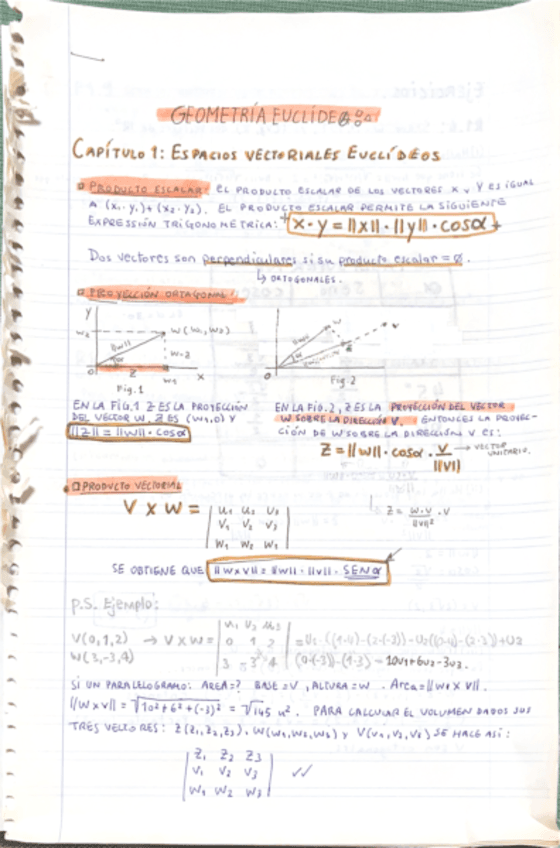 GEOMETRÍA EUCLÍDEA
CAPÍTULO 1: ESPACIOS VECTORIALES EUCLÍDEOS
PRODUCTO ESCALAR: EL PRODUCTO ESCALAR DE LOS VECTORES X Y Y ES IGUAL
A (x₁·y₁)+(x₂·y₂). EL PRODUCTO ESCALAR PERMITE LA SIGUIENTE
EXPRESSIÓN TRIGONOMÉTRICA: x·y = ||x||·||y||·cosα
Dos vectores son perpendiculares si su producto escalar = ∅.
↳ ORTOGONALES.
PROYECCIÓN ORTAGONAL:
y
w₂
W(W₁,W₂)
||w||
α
w-z
0
z
w₁
x
Fig.1
w
||w||
α
z
v
0
Fig.2
EN LA FIG.1 Z ES LA PROYECCIÓN
DEL VECTOR W. Z ES (W₁,0) Y
||Z|| = ||W||·cosα
EN LA FIG.2, Z ES LA PROYECCIÓN DEL VECTOR
W SOBRE LA DIRECCIÓN V. ENTONCES LA PROYEC-
CIÓN DE W SOBRE LA DIRECCIÓN V ES:
Z = ||W||·cosα·V/||V|| → VECTOR UNITARIO.
Z = W·V/||V||²·V
PRODUCTO VECTORIAL
V x W =
U₁ U₂ U₃
V₁ V₂ V₃
W₁ W₂ W₃
SE OBTIENE QUE ||WxV|| = ||W||·||V||·SENα
P.S. Ejemplo:
V(0,1,2) → V x W =
W(3,-3,4)
U₁ U₂ U₃
0 1 2
3 -3 4
= U₁·((1·4)-(2·(-3)))-U₂((0·4)-(2·3))+U₃
(0·(-3))-(1·3) = 10U₁+6U₂-3U₃.
SI UN PARALELOGRAMO: AREA=? BASE=V, ALTURA=W. Area=||W x V||.
||WxV|| = √10²+6²+(-3)² = √145 u². PARA CALCULAR EL VOLUMEN DADOS SUS
TRES VECTORES: Z(Z₁,Z₂,Z₃), W(W₁,W₂,W₃) Y V(V₁,V₂,V₃) SE HACE ASÍ:
Z₁ Z₂ Z₃
V₁ V₂ V₃
W₁ W₂ W₃